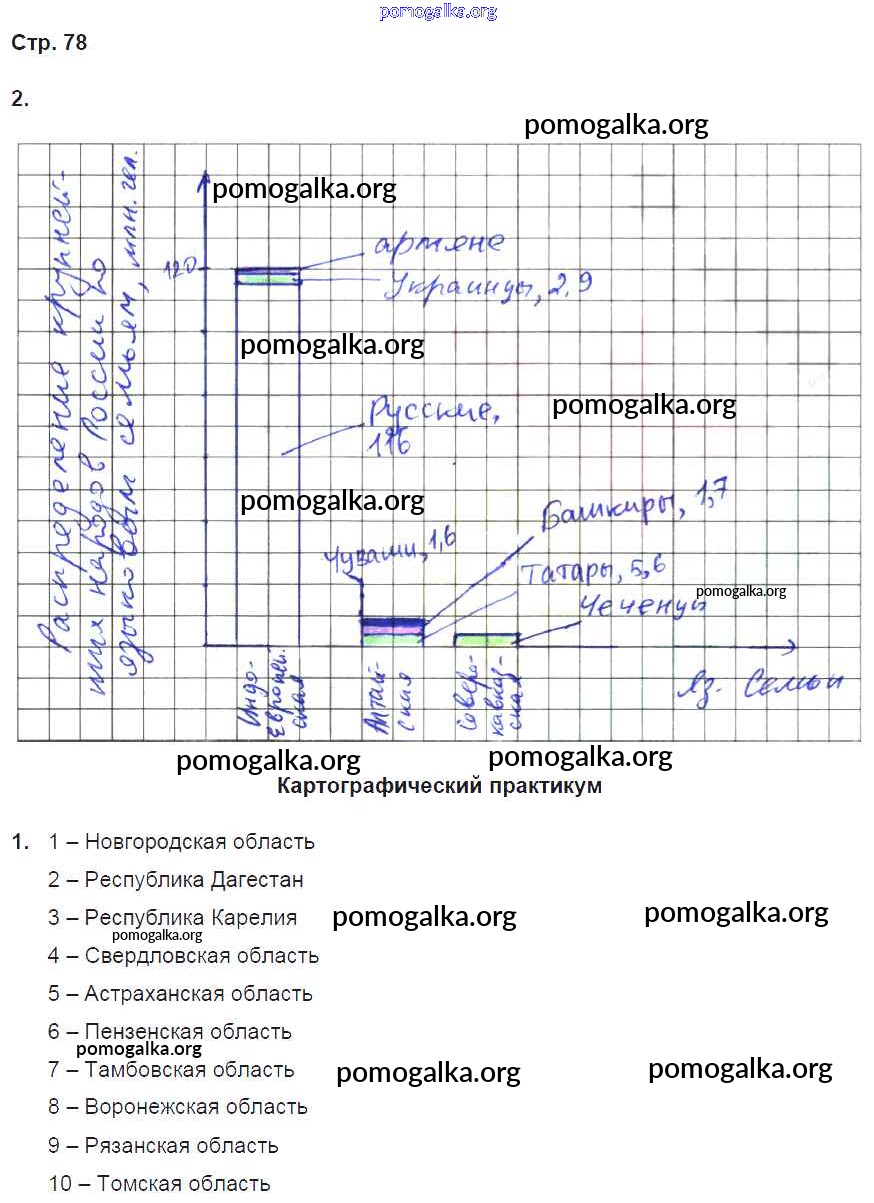 pomogalka.org
Стр. 78
2.
pomogalka.org
Распределение крупней-
ших народов России по
языковым семьям, млн. чел.
pomogalka.org
армяне
120
Украинцы, 2,9
pomogalka.org
Русские,
116
pomogalka.org
pomogalka.org
Башкиры, 1,7
Чуваши, 1,6
Татары, 5,6
pomogalka.org
Чеченцы
Индо-
европей.
ская
Алтай-
ская
Северо-
кавказ-
ская
яз. семьи
pomogalka.org
pomogalka.org
Картографический практикум
1. 1 – Новгородская область
2 – Республика Дагестан
3 – Республика Карелия
pomogalka.org
pomogalka.org
pomogalka.org
4 – Свердловская область
5 – Астраханская область
6 – Пензенская область
pomogalka.org
7 – Тамбовская область
pomogalka.org
pomogalka.org
8 – Воронежская область
9 – Рязанская область
10 – Томская область